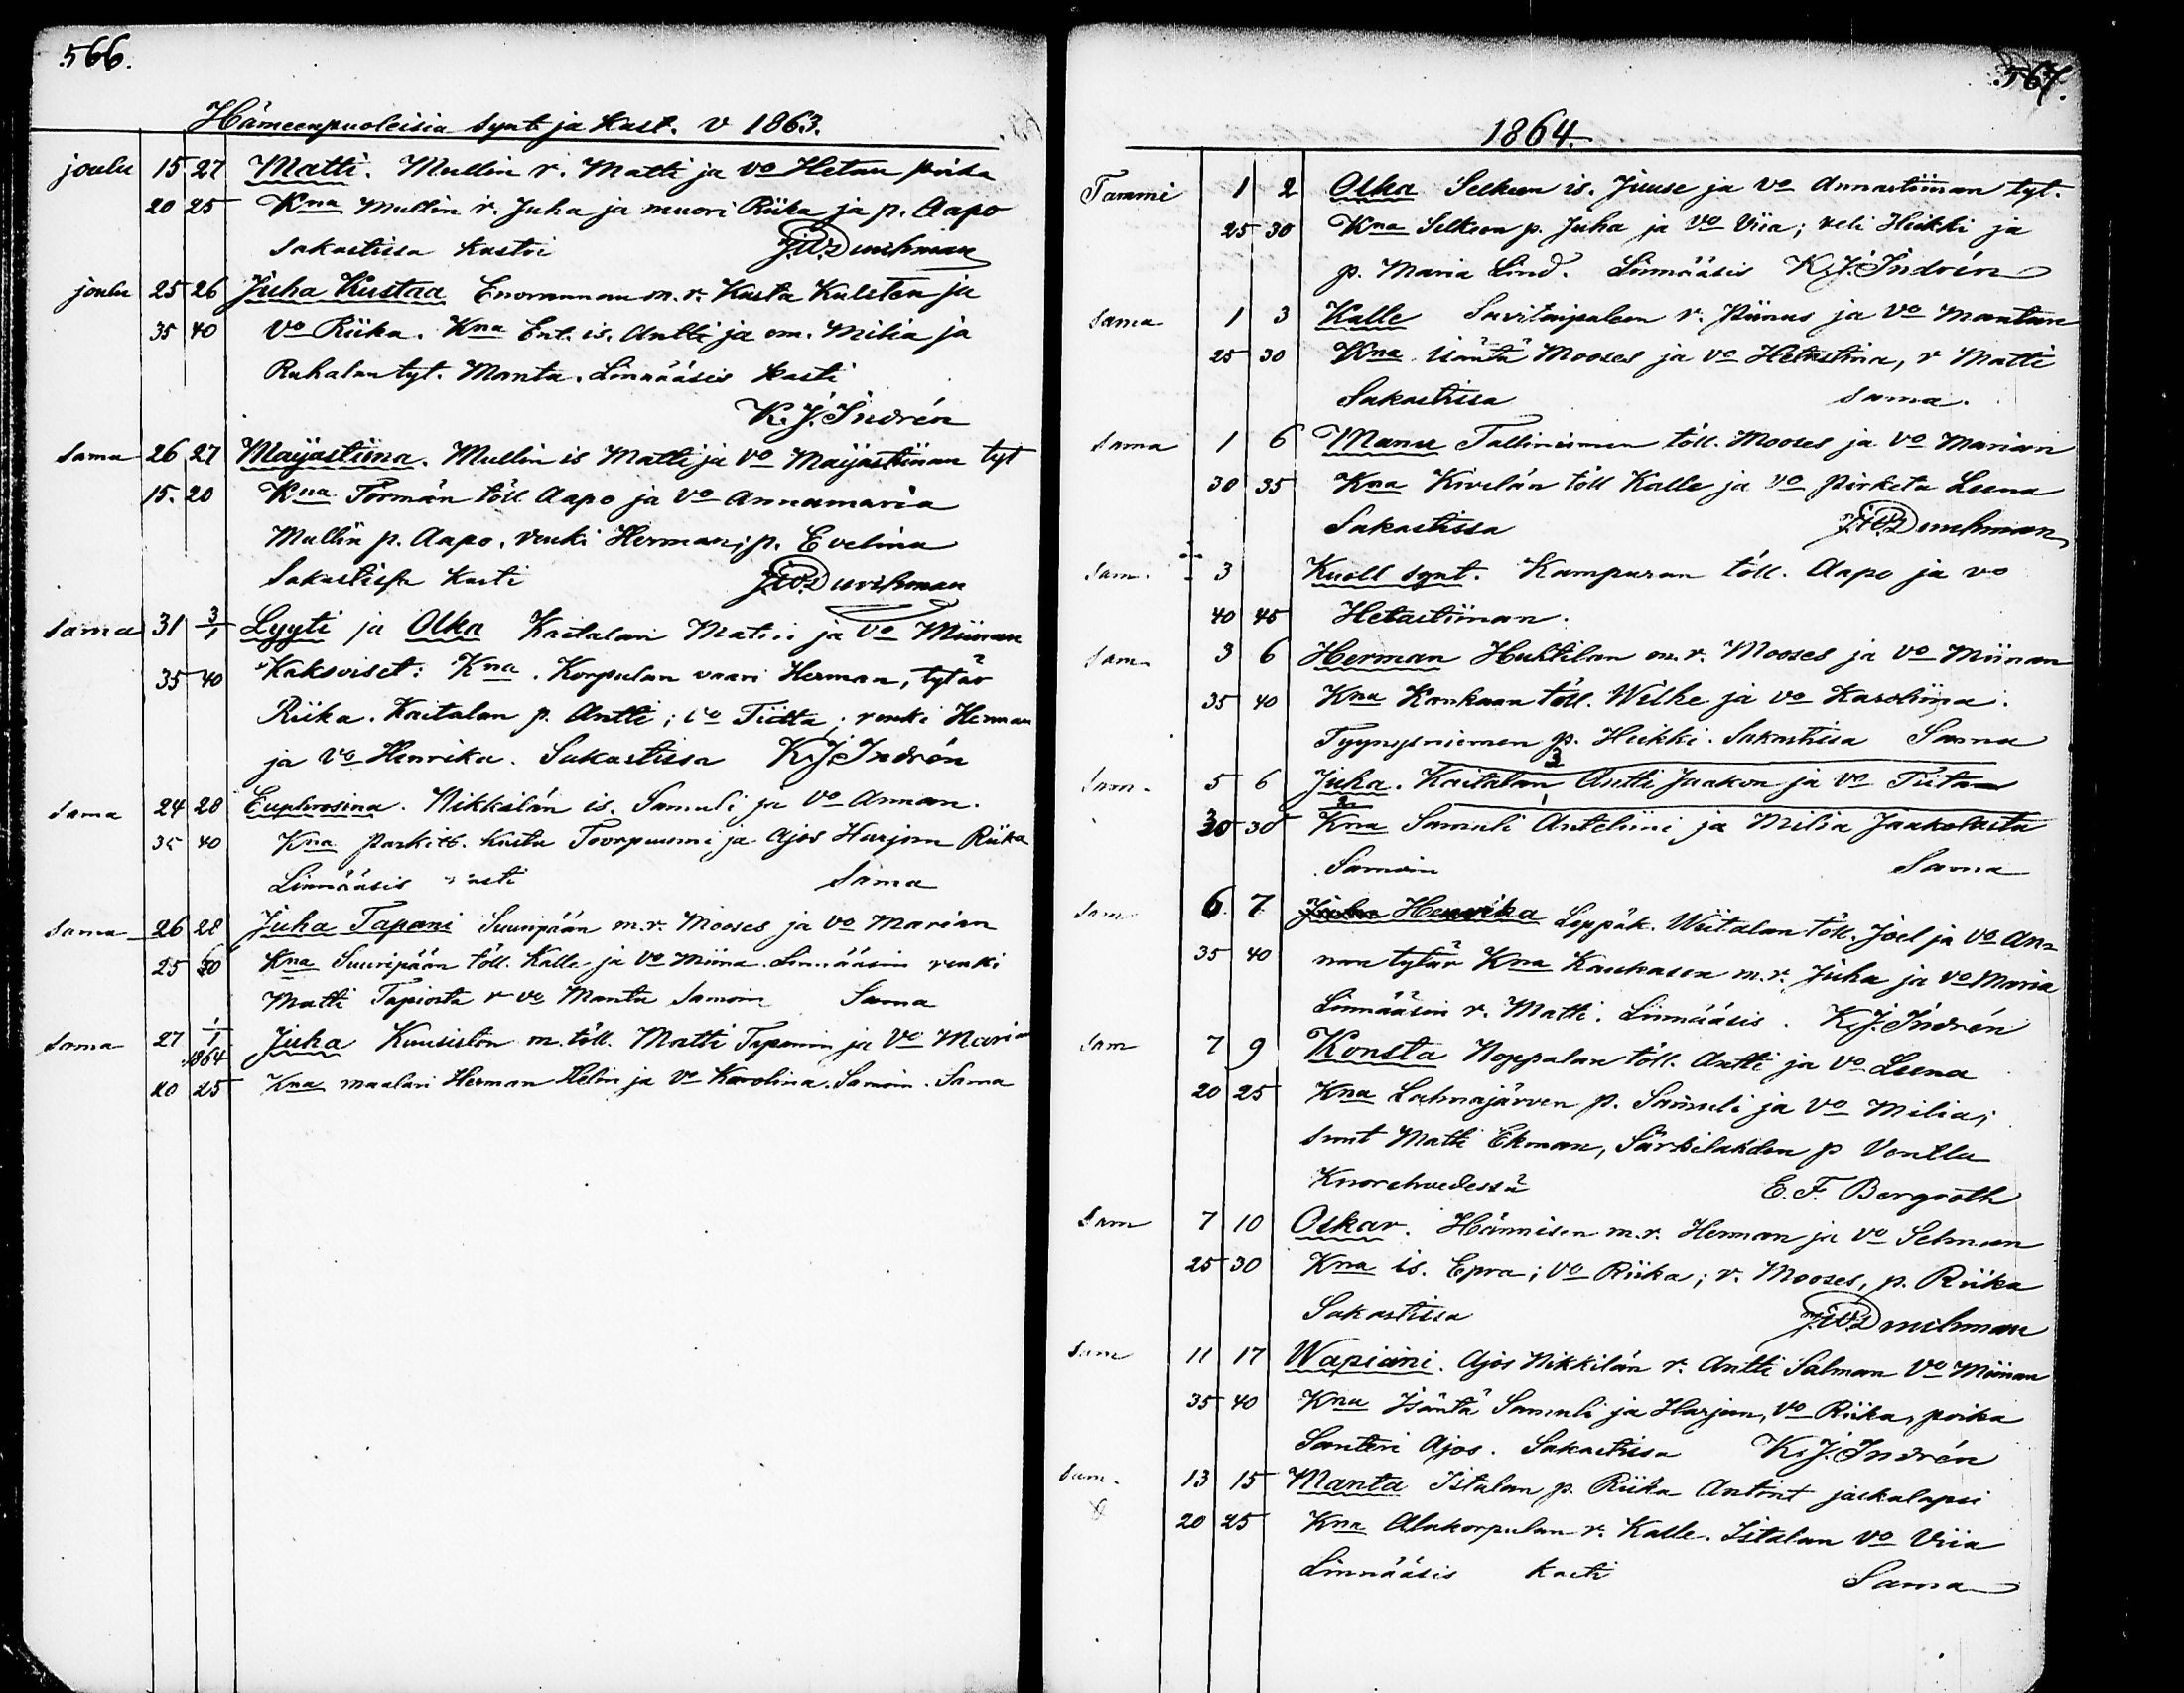 566.
Hämeenpuoleisia synt ja kast. v 1863.
joulu 15 27 Matti. Mullin r. Matti ja vo Hetan poika
20 25 Kna Mullin r. Juha ja muori Riika ja p. Aapo
Sakastissa kastoi
joulu 25 26 Juha Kustaa m. r. Kusta Kulsten ja
35 40 vo Riika. Kna Ent. is. Antti ja em. Milia ja
Ruhalan tyt. Manta. Linnääsis kasti
K. J. Indrén
Sama 26 27 Maijastiina. Mullin is Matti ja vo Maijastiinan tyt
15. 20 Kna Törmän töll Aapo ja vo Annamaria
Mullin p. Aapo, renki Herman; p. Evelina
Sakastissa kasti
Sama 31 3/1 Lyyti ja Olka Kaitalan Matin ja vo Miinan
35 40 Kaksoiset: Kna. Korpulan vaari Herman, tytär
Riika. Kaitalan p. Antti; vo Tiitta; renki Herman
ja vo Henrika. Sakastissa K. J. Indrén
Sama 24 28 Euphrosina. Nikkilän is. Samuli ja vo Annan.
35 40 Kna Kusta ja Ajos Harjun Riika
Linnääsis kasti Sama
Sama 26 28 Juha Tapani Suuripään m. r. Mooses ja vo Marian
25 30 Kna Suuripään töll. Kalle ja vo Miina. Linnääsin renki
Matti r vo Manta Samoin Sama
Sama 27 1/1 1864 Juha Kuusiston m. töll. Matti Tapanin ja vo Marian
20 25 Kna maalari Herman Helin ja vo Karolina. Samoin. Sama
567.
1864.
Tammi 1 2 Olka Selkeen is. Juuse ja vo Annastiinan tyt.
25 30 Kna Selkeen p. Juha ja vo Viia; veli Heikki ja
p. Maria Lind. Linnääsis K. J. Indrén
Sama 1 3 Kalle Savitaipaleen r. Piinus ja vo Mantan
25 30 Kna isäntä Mooses ja vo Hetastina, r Matti
Sakastissa Sama.
Sama 1 6 Manu Talliniemen töll. Mooses ja vo Marian
30 35 Kna Kivelän töll Kalle ja vo Pirketa Leena
Sakastissa
Sam. 3 Kuoll synt. Kampuran töll. Aapo ja vo
40 45 Hetastiinan.
Sam. 3 6 Herman Huhtilan m. r. Mooses ja vo Miinan
35 40 Kna töll. Wilhe ja vo Karoliina.
Tyynysniemen p. Heikki. Sakastissa Sama
Sam. 5 6 Juha. Kaitalan Antti Jaakon ja vo Tiitan
30 30 Kna Samuli ja Milia Jaakolasta
Samoin Sama
Sam 6 7 Henrika Leppäk. Wiitalan töll. Joel ja vo An=
35 40 nan tytär Kna Kaukasen m. r. Juha ja vo Maria
Linnääsin r. Matti. Linnääsis. K. J. Indrén
Sam 7 9 Konsta Noppalan töll. Antti ja vo Leena
20 25 Kna Lahnajärven p. Samuli ja vo Milia;
sunt Matti Ekman, Särkilahden p Ventla
Kuorehvedessä E. F. Bergroth
Sam 7 10 Oskar. Hännisen m. r. Herman ja vo Selman
25 30 Kna is. Epra; vo Riika; r. Mooses, p. Riika
Sakastissa
Sam 11 17 Wapiani. Ajos Nikkilän r. Antti Salman vo Miinan
35 40 Kna Isäntä Samuli ja Harjun, vo Riika, poika
Santeri Ajos. Sakastissa K. J. Indrén
Sam. 13 15 Manta Istalan p. Riika Antint jalkalapsi
20 25 Kna Alakorpulan r. Kalle. Istalan vo Viia
Linnääsis kasti Sama